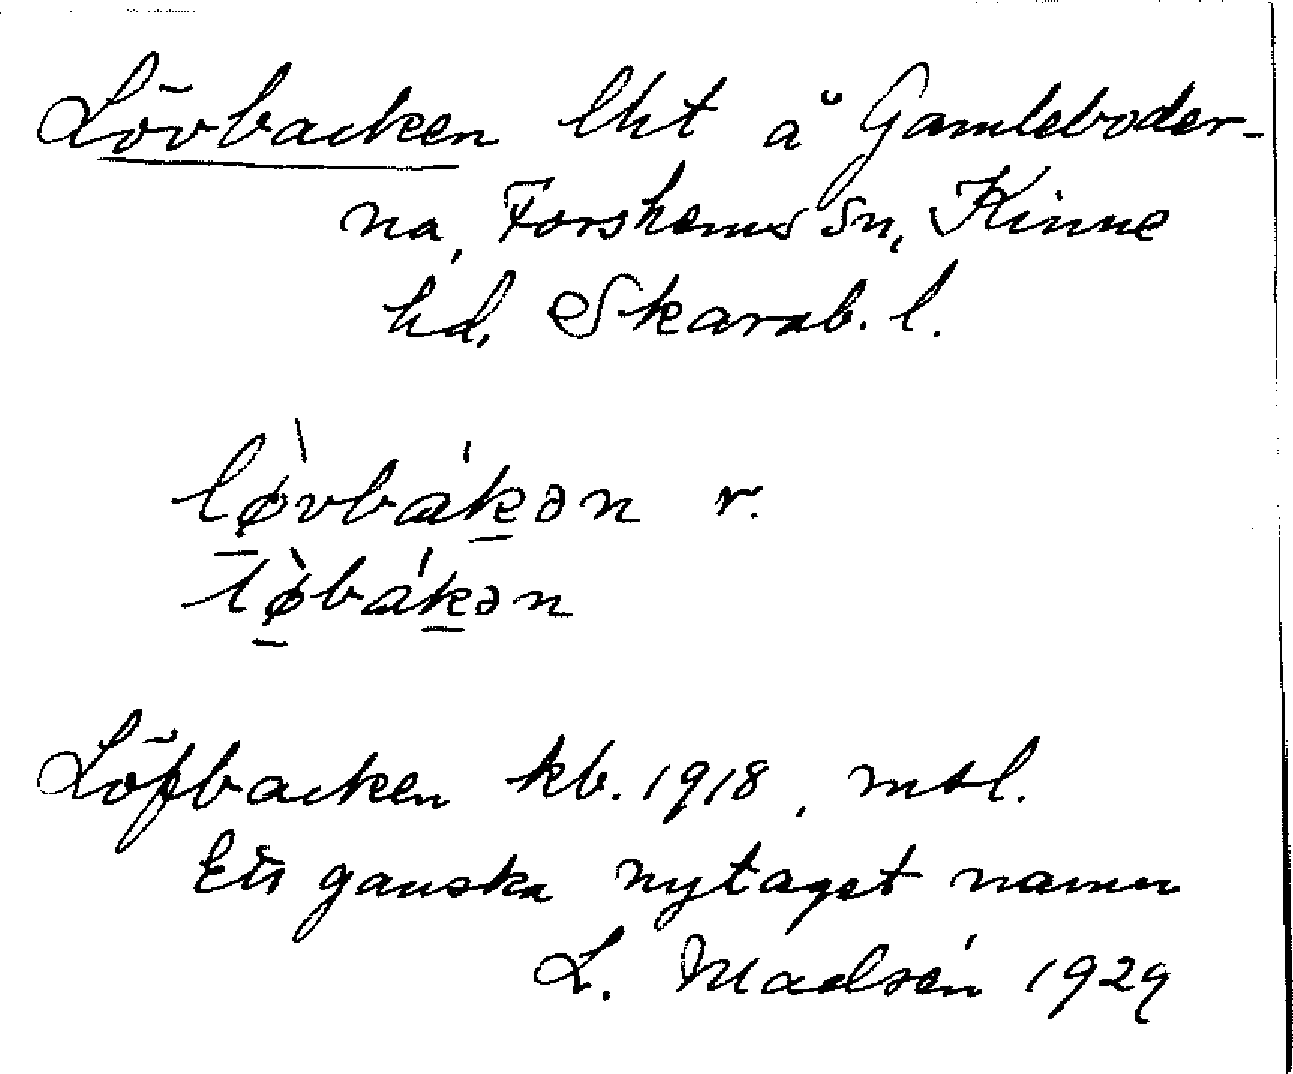 Lövbacken lht å Gamleboder-
na, Forshems sn, Kinne
hd, Skarab. l.
lø̀vbák̲ən r.
lø̲̀bák̲ən
Löfbacken kb. 1918, mtl.
Ett ganska nytaget namn
L. Madsén 1929